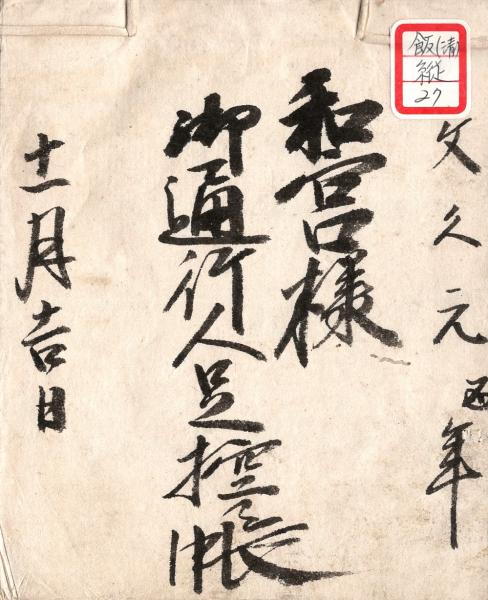 文久元酉年
和宮様
御通行人足控帳
十一月吉日
飯(清)
縦
27